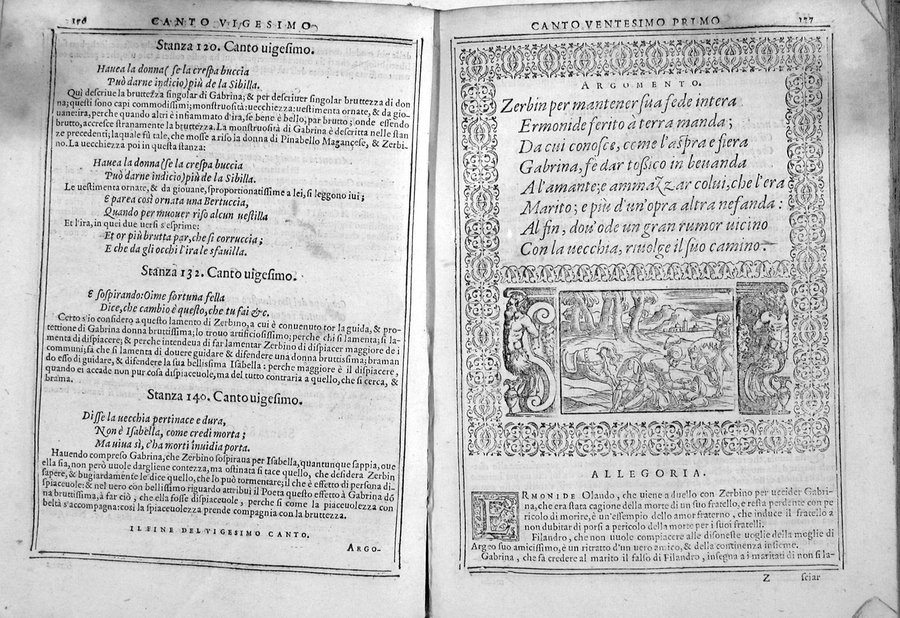 176 CANTO VIGESIMO
Stanza 120. Canto uigesimo.
Hauea la donna (se la crespa buccia
Può darne indicio) più de la Sibilla.
Qui descriue la bruttezza singolar di Gabrina; & per descriuer singolar bruttezza di don
na; questi sono capi commodissimi; monstruosità: uecchiezza: uestimenta ornate, & da gio-
uanetira, perche quando altri è infiammato d'ira, se bene è bello, par brutto; onde essendo
brutto, accresce stranamente la bruttezza. La monstruosità di Gabrina è descritta nelle stan
ze precedenti; la quale fù tale, che mosse a riso la donna di Pinabello Magancese, & Zerbi-
no. La uecchiezza poi in questa stanza:
Hauea la donna (se la crespa buccia
Può darne indicio) più de la Sibilla.
Le uestimenta ornate, & da giouane, sproportionatissime a lei, si leggono iui;
E parea così ornata una Bertuccia,
Quando per muouer riso alcun uestilla
Et l'ira, in quei due uersi s'esprime:
Et or più brutta par, che si corruccia;
E che da gli occhi l'ira le sfauilla.
Stanza 132. Canto uigesimo.
E sospirando: Oime fortuna fella
Dice, che cambio è questo, che tu fai &c.
Certo s'io considero a questo lamento di Zerbino, a cui è conuenuto tor la guida, & pro-
tettione di Gabrina donna bruttissima; lo trouo artificiosissimo; perche chi si lamenta; si la-
menta di dispiacere; & perche intendeua di far lamentar Zerbino di dispiacer maggiore de i
communi; fa che si lamenta di douere guidare & difendere una donna bruttissima; braman
do esso di guidare, & difendere la sua bellissima Isabella: perche maggiore è il dispiacere,
quando ei accade non pur cosa dispiaceuole, ma del tutto contraria a quello, che si cerca, &
brama.
Stanza 140. Canto uigesimo.
Disse la uecchia pertinace e dura,
Non è Isabella, come credi morta;
Ma uiua sì, c'ha morti inuidia porta.
Hauendo compreso Gabrina, che Zerbino sospiraua per Isabella, quantunque sappia, oue
ella sia, non però uuole dargliene contezza, ma ostinata si tace quello, che desidera Zerbin
sapere, & bugiardamente le dice quello, che lo può tormentare; il che è effetto di persona di-
spiaceuole: & nel uero con bellissimo riguardo attribuì il Poeta questo effetto à Gabrina dō
na bruttissima, à far ciò, che ella fosse dispiaceuole, perche si come la piaceuolezza con
beltà s'accompagna: così la spiaceuolezza prende compagnia con la bruttezza.
IL FINE DEL VIGESIMO CANTO.
ARGO-
CANTO VENTESIMO PRIMO 177
ARGOMENTO.
Zerbin per mantener sua fede intera
Ermonide ferito à terra manda;
Da cui conosce, come l'aspra e fiera
Gabrina, fe dar tossico in beuanda
A l'amante; e ammazzar colui, che l'era
Marito; e più d'un'opra altra nefanda:
Al fin, dou'ode un gran rumor uicino
Con la uecchia, riuolge il suo camino.
ALLEGORIA.
ERMONIDE Olando, che uiene a duello con Zerbino per uccider Gabri-
na, che era stata cagione della morte di un suo fratello, e resta perdente con pe
ricolo di morire, è un'essempio dello amor fraterno, che induce il fratello a
non dubitar di porsi a pericolo della morte per i suoi fratelli.
Filandro, che non uuole compiacere alle disoneste uoglie della moglie di
Argeo suo amicissimo, è un ritratto d'un uero amico, & della continenza insieme.
Gabrina, che fa credere al marito il falso di Filandro, insegna a i maritati di non si la-
Z sciar